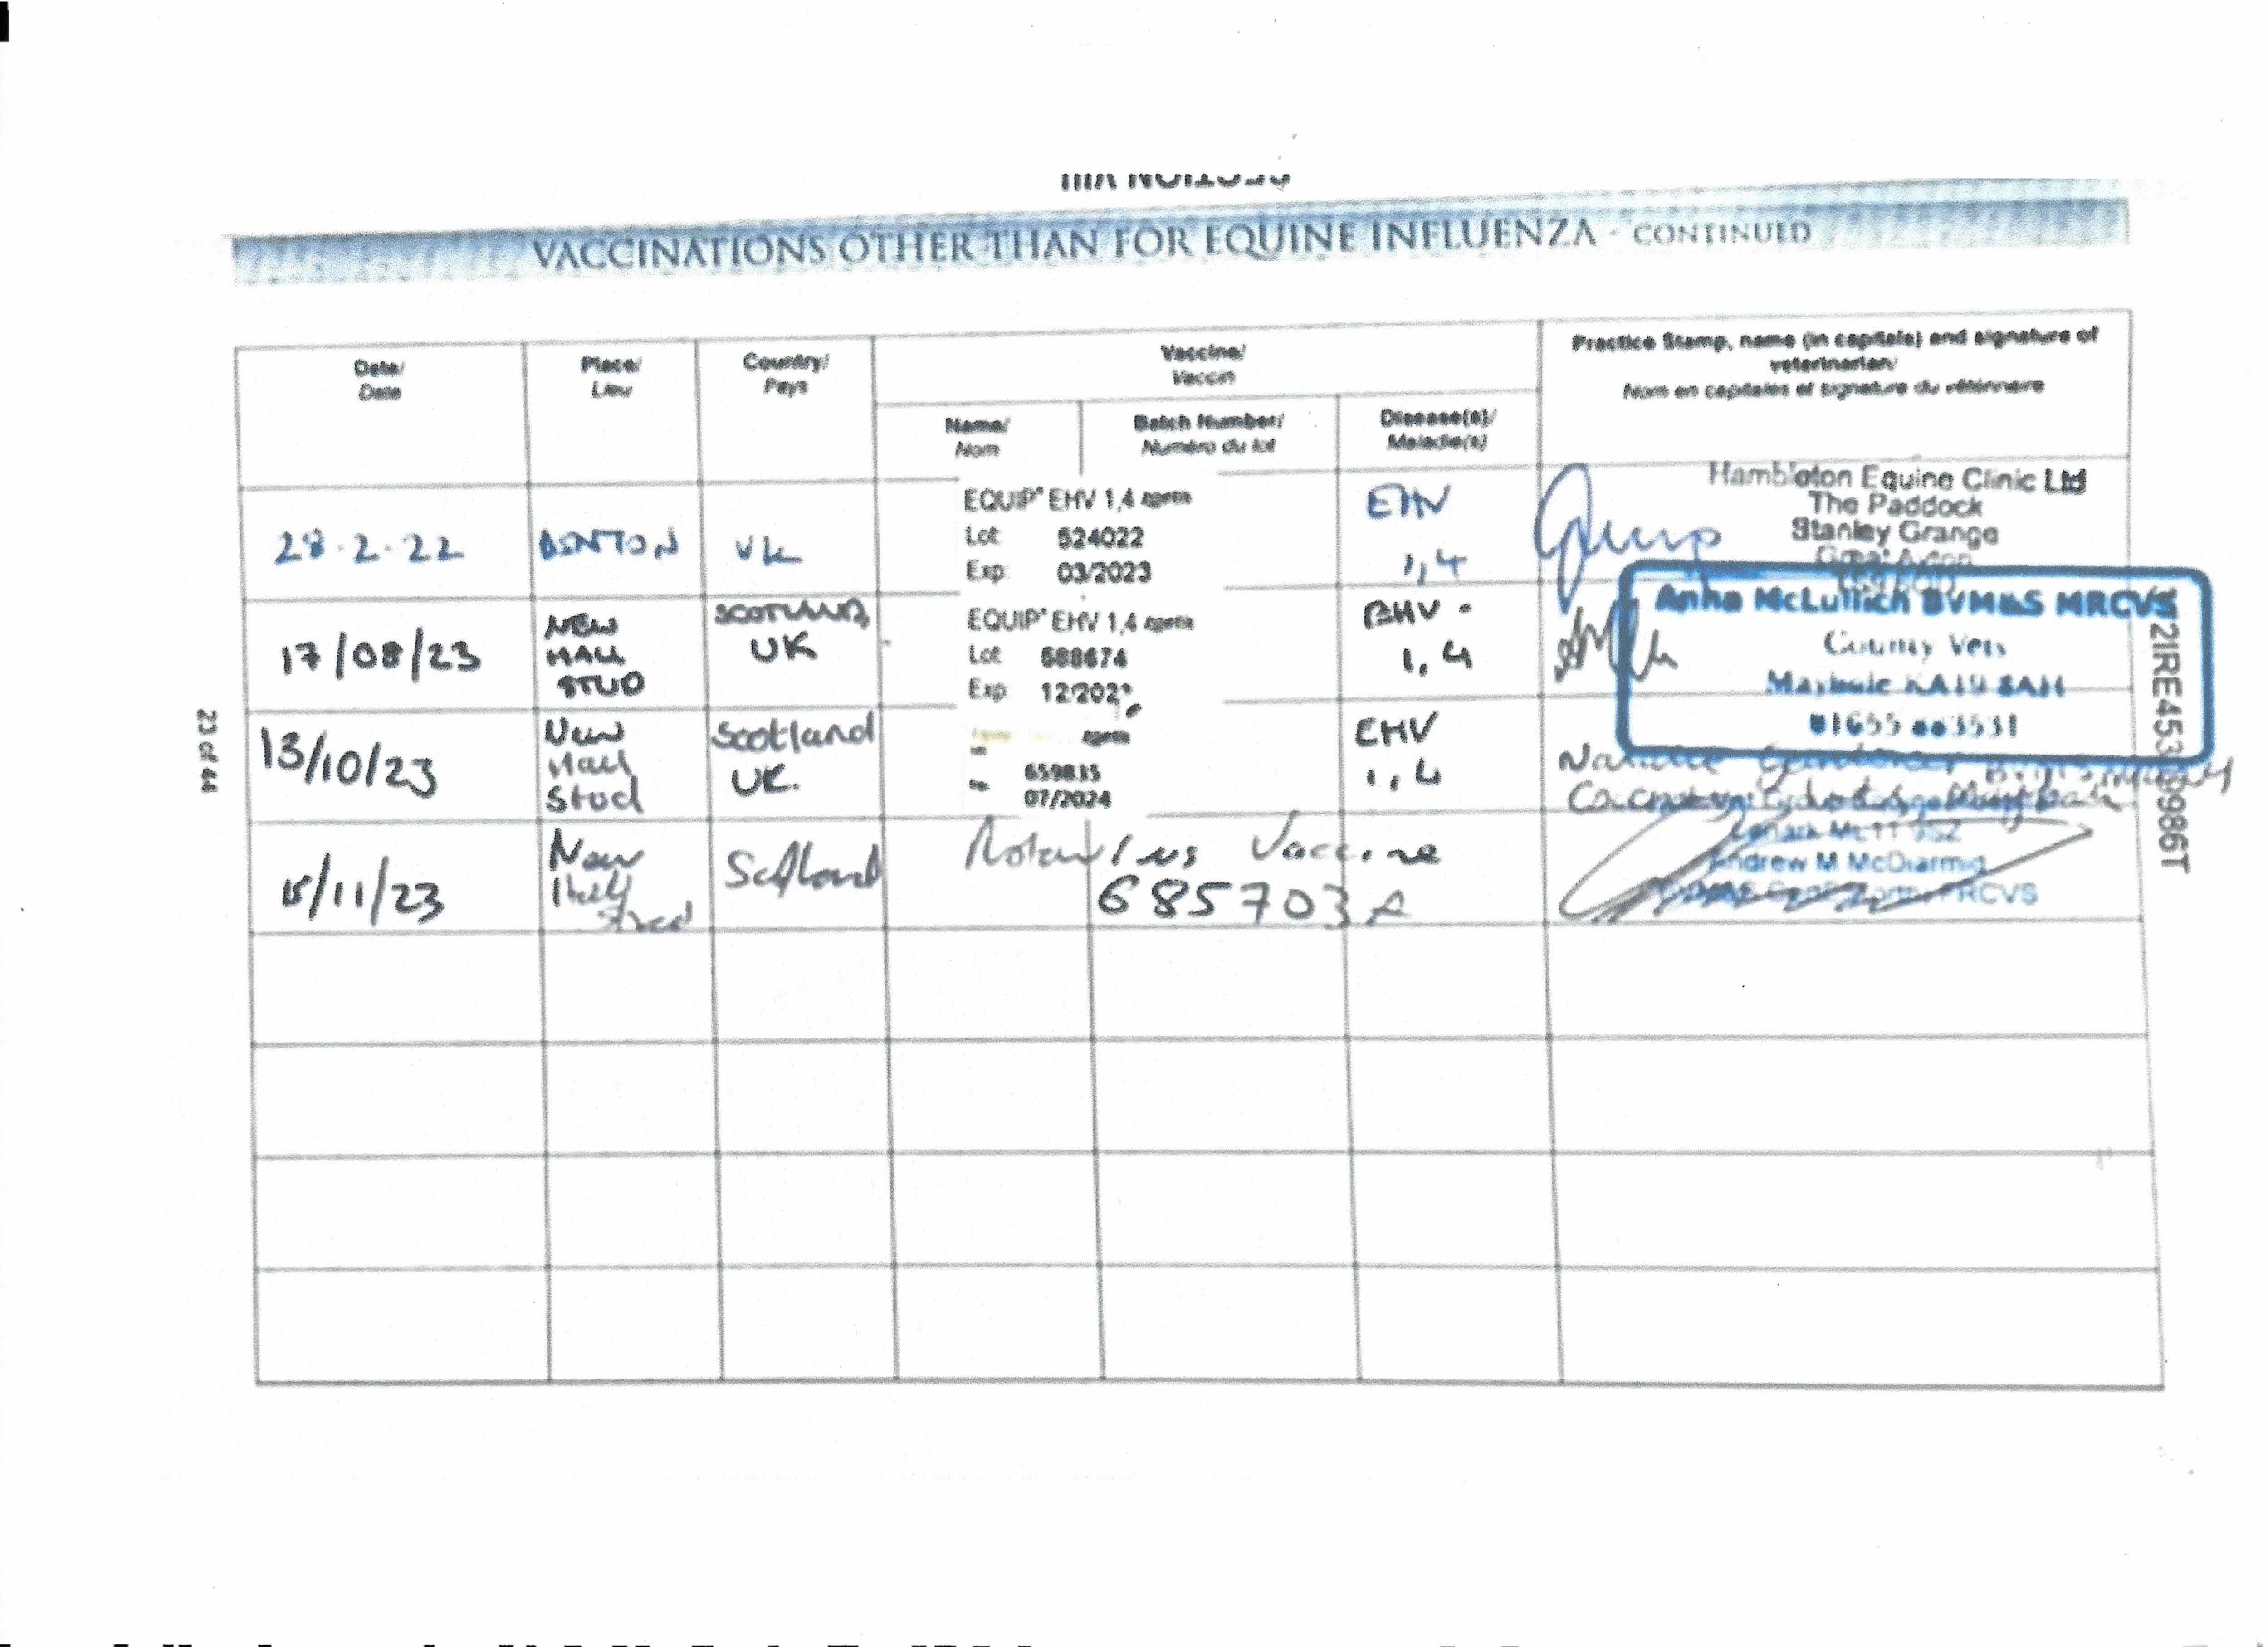 SECTION VIII
VACCINATIONS OTHER THAN FOR EQUINE INFLUENZA - CONTINUED
Date/
Date
Place/
Lieu
Country/
Pays
Vaccine/
Vaccin
Name/
Nom
Batch Number/
Numéro du lot
Disease(s)/
Maladie(s)
Practice Stamp, name (in capitals) and signature of
veterinarian/
Nom en capitales et signature du vétérinaire
28.2.22
UK
EQUIP EHV 1,4
Lot 524022
Exp 03/2023
EHV
1,4
Hambleton Equine Clinic Ltd
The Paddock
Stanley Grange
Great Ayton
17/08/23
NEW
HALL
STUD
SCOTLAND
UK
EQUIP EHV 1,4
Lot
Exp
EHV -
1,4
Anna McLullich BVM&S MRCVS
County Vets
Maybole KA19 8AH
13/10/23
New
Hall
Stud
Scotland
UK.
659815
07/2024
EHV
1,4
15/11/23
New
Hall
Stud
Scotland
Rotavirus Vaccine
685703A
Andrew M McDiarmid
MRCVS
23 of 44